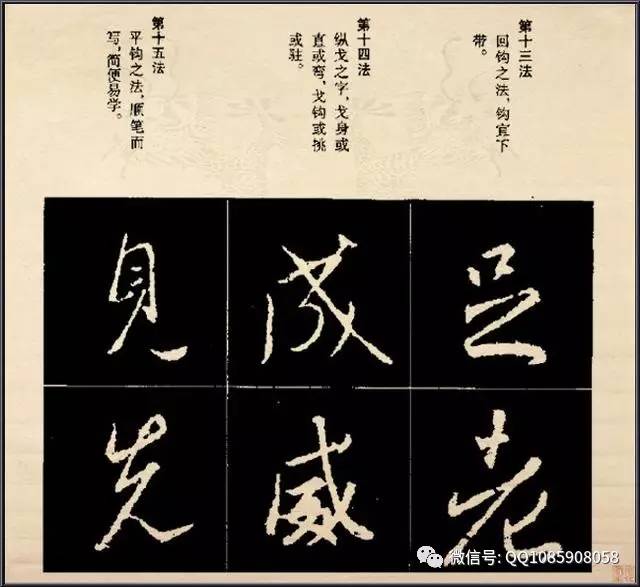 第十三法
回钩之法，钩宜下
带。
第十四法
纵戈之字，戈身或
直或弯，戈钩或挑
或驻。
第十五法
平钩之法，顺笔而
写，简便易学。
足
老
成
威
見
先
微信号: QQ1085908058